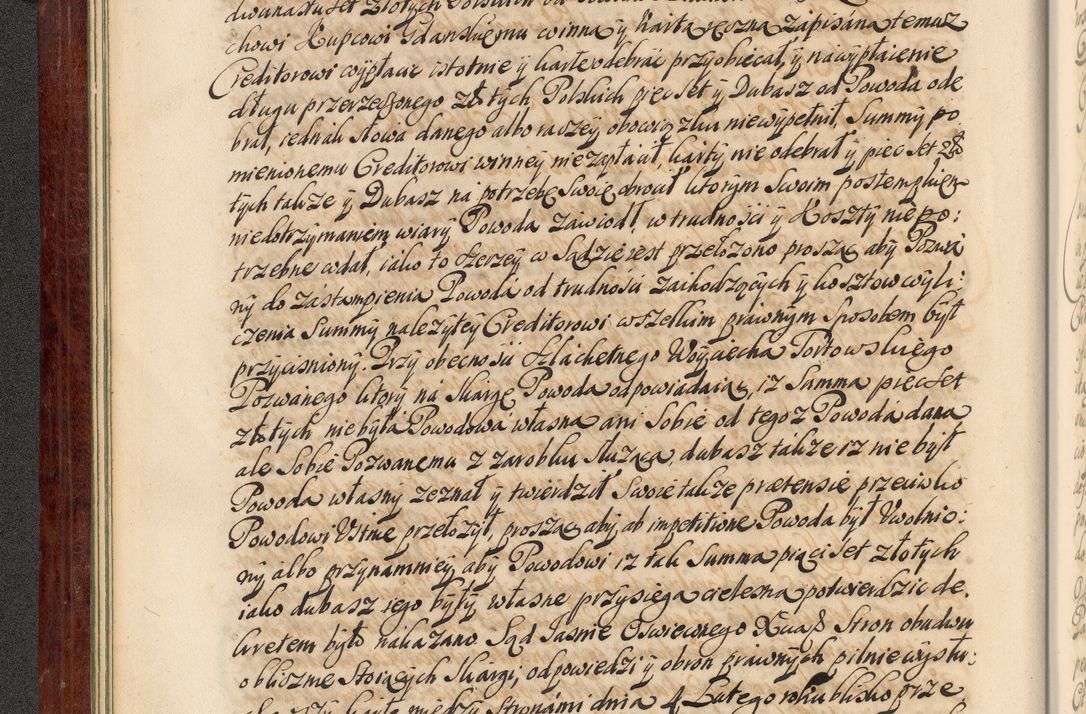 dwanastu set Złotych Polskich
chowi Kupcowi Gdanskiemu winną y Kartą ręczną zapisaną temuz
Creditorowi wypłacic istotnie y kartę odebrać przyobiecał, y na wypłacenie
długu przerzeczonego złotych Polskich pięc set y Dubasz od Powoda ode
brał, iednak słowa danego albo raczey obowiązku niewypełnił, Summy po
mienionemu Creditorowi winney niezapłacił, karty nie odebrał y pięc set zło
tych także y Dubasz na potrzebę swoię obrocił, ktorym swoim postempkiem
niedotrzymaniem wiary Powoda zawiodł, w trudności y Koszty niepo:
trzebne wdał, iako to szerzey w Sądzie iest przełozono prosząc aby Pozwa
ny do zastąmpienia Powoda od trudności zachodzących y kosztow wyli:
czenia Summy należytey Creditorowi wszelkim prawnym sposobem był
przycisniony. Przy obecności szlachetnego Woyciecha Torłowskiego
Pozwanego ktory na skargę Powoda odpowiadaiąc, iz Summa pięc set
złotych niebyła Powodowa własna ani sobie od tegoz Powoda dana
ale sobie Pozwanemu z zarobku służąca, dubasz także iz nie był
Powoda własny zeznał y twierdził swoie także prætensie przeciwko
Powodowi Ustnie przełożył, prosząc aby ab impetitione Powoda był Uwolnio:
ny, albo przynamniey aby Powodowi iz tak Summa pięci set złotych
iako dubasz iego były, własne przysięgą cielesną potwierdzic de.
kretem było nakazano Sąd Jasnie Oswieconego Xcia Stron obudwu
oblicznie stoiących skargi, odpowiedzi y obron prawnych pilnie wysłu:
między Stronami dnia 4 Lutego roku blisko prze